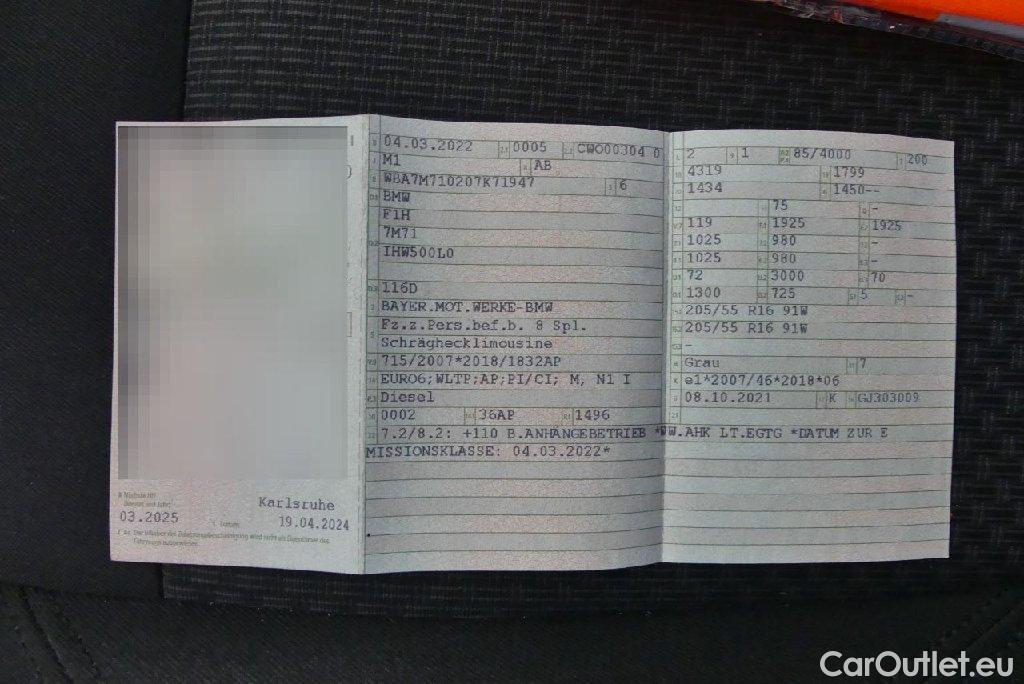 Karlsruhe
03.2025
19.04.2024
04.03.2022 0005 CWO00304 0
M1 AB
WBA7M710207K71947 6
BMW
F1H
7M71
IHW500L0
116D
BAYER.MOT.WERKE-BMW
Fz.z.Pers.bef.b. 8 Spl.
Schräghecklimousine
715/2007*2018/1832AP
EURO6;WLTP;AP;PI/CI; M, N1 I
Diesel
0002 36AP 1496
7.2/8.2: +110 B.ANHÄNGEBETRIEB *WW.AHK LT.EGTG *DATUM ZUR E
MISSIONSKLASSE: 04.03.2022*
2 1 85/4000 200
4319 1799
1434 1450--
75 -
119 1925 1925
1025 980 -
1025 980 -
72 3000 70
1300 725 5 -
205/55 R16 91W
205/55 R16 91W
-
Grau 7
e1*2007/46*2018*06
08.10.2021 K GJ303009
CarOutlet.eu